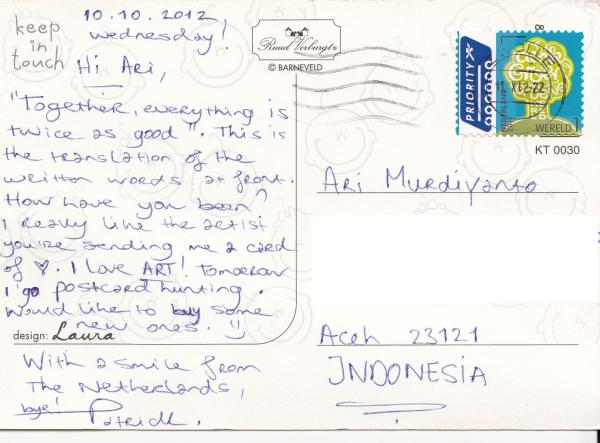 keep
in
touch
10.10.2012
wednesday!
Hi Ari,
"Together, everything is
twice as good". This is
the translation of the
written words at front.
How have you been?
I really like the artist
you're sending me a card
of ♥. I love ART! Tomorrow
I go postcard hunting.
Would like to buy some
new ones. :)
design: Laura
With a smile from
The Netherlands,
bye!
Patrick.
Ruud Verburgt
© BARNEVELD
PRIORITY
NEDERLAND
WERELD 1
KT 0030
Ari Murdiyanto
Aceh 23121
INDONESIA